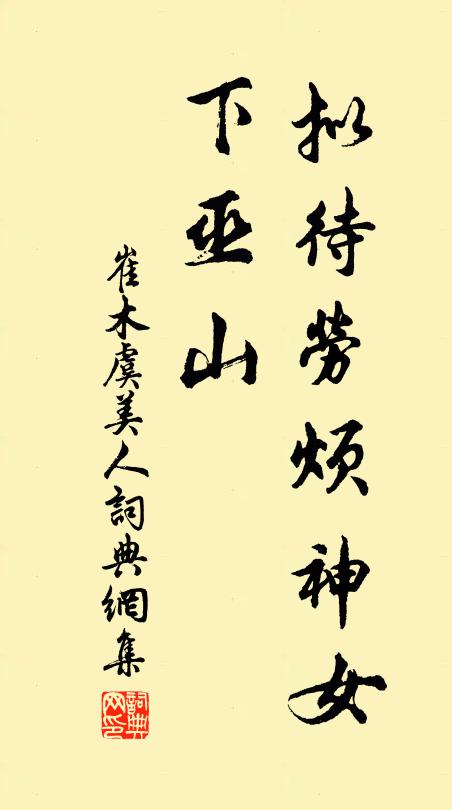 拟待劳烦神女
下巫山
崔木虞美人詞典網集
詞典网印